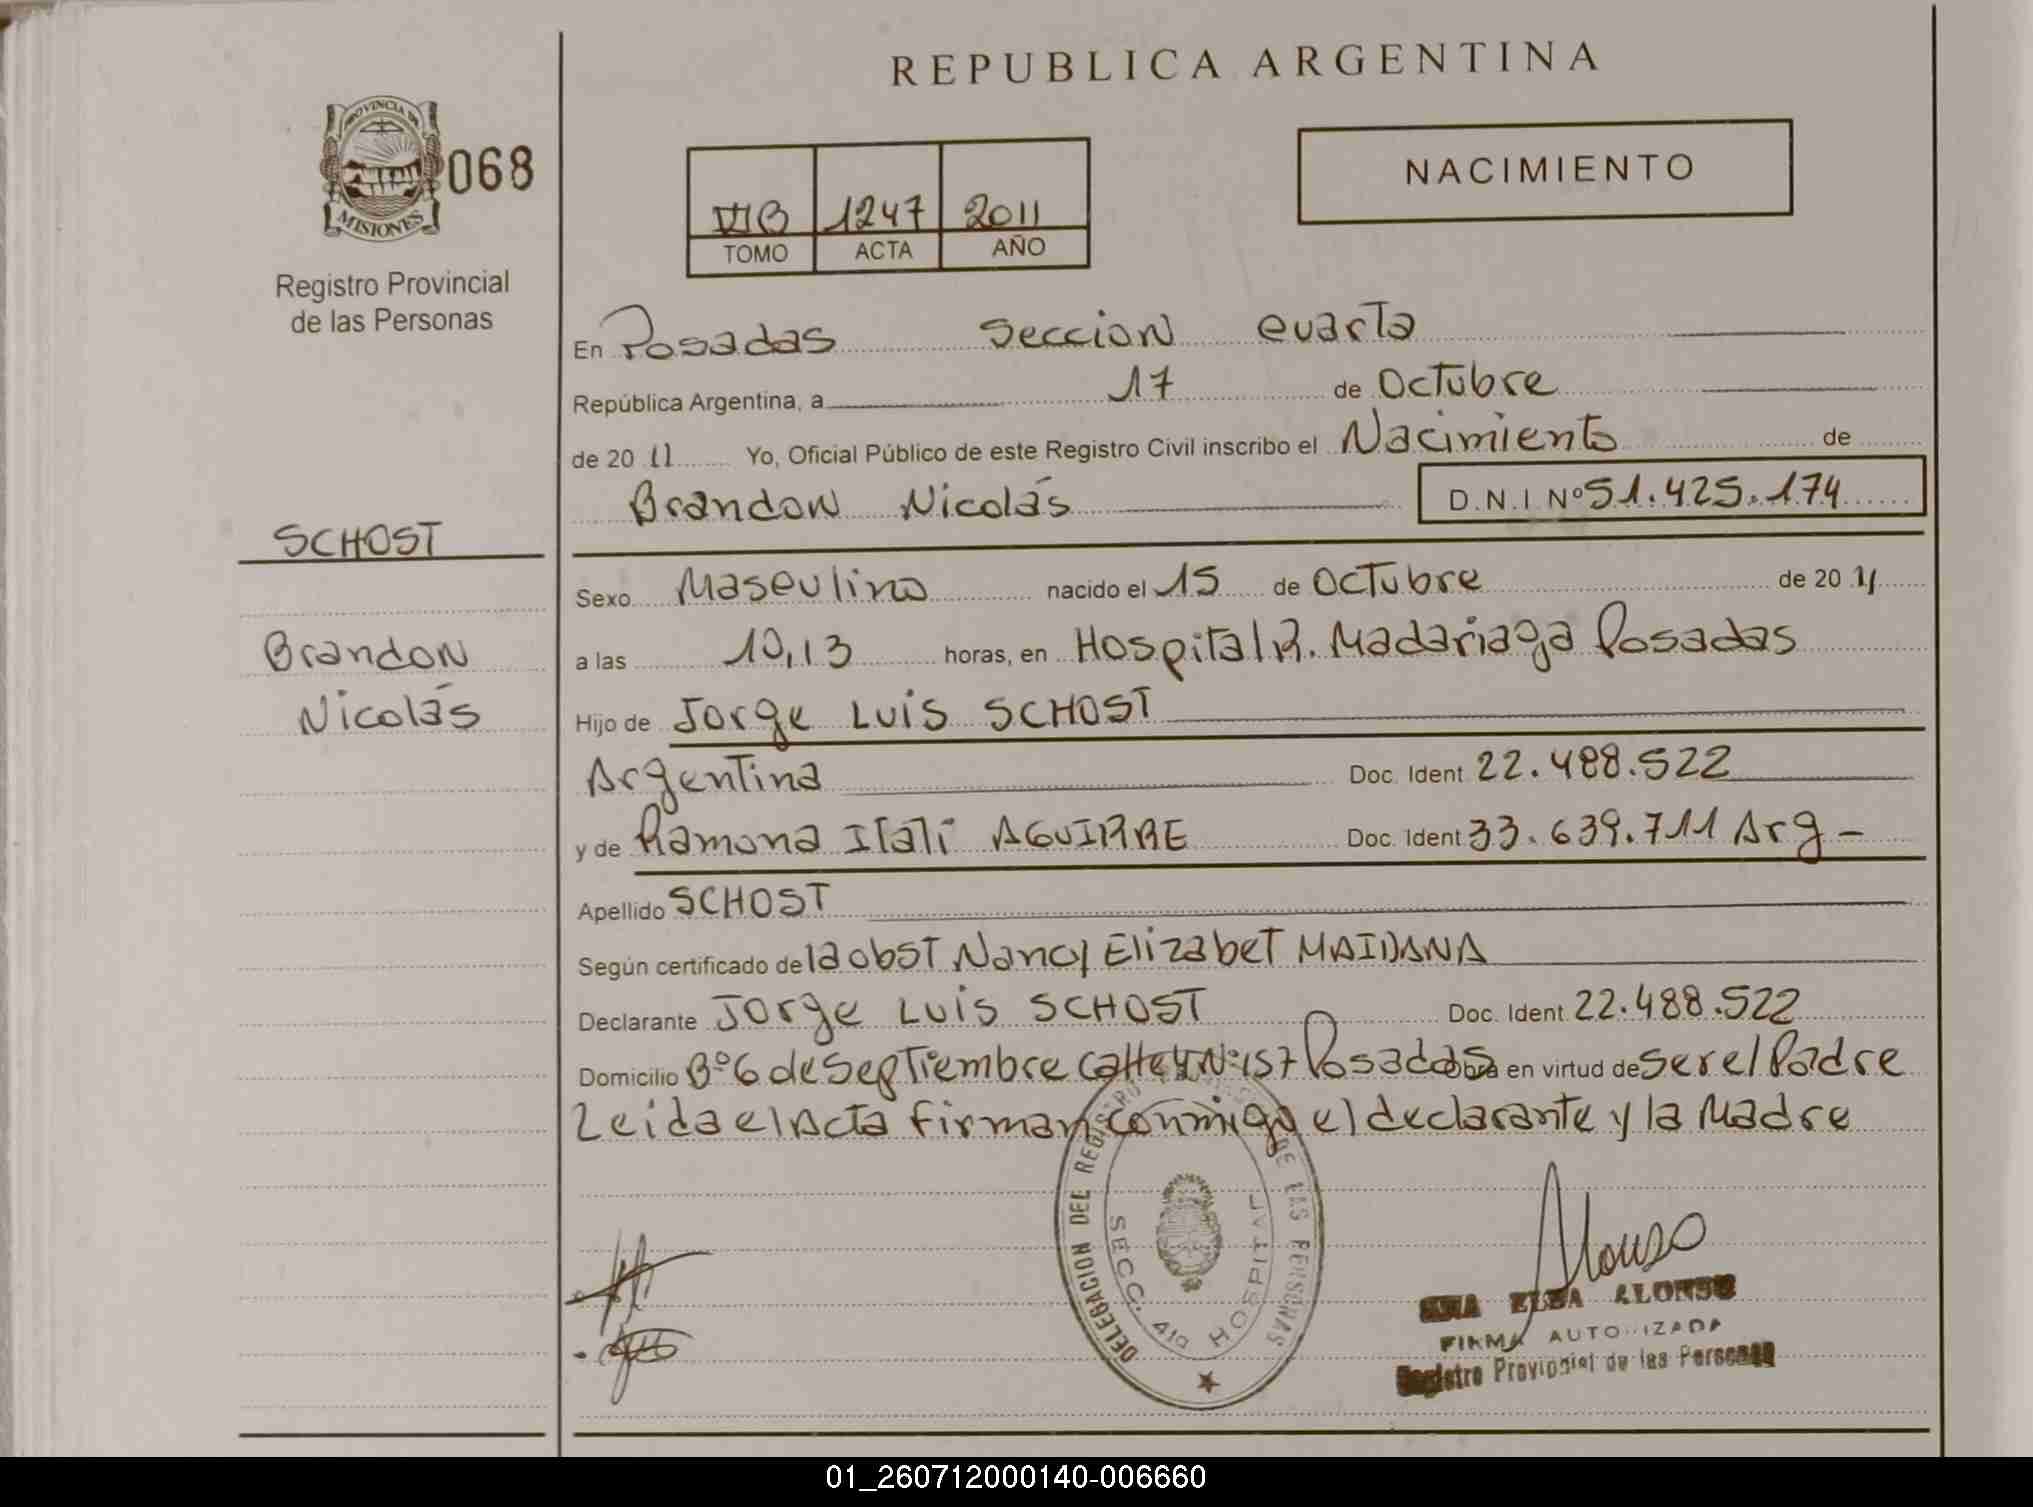 REPUBLICA ARGENTINA
PROVINCIA DE
MISIONES
068
NACIMIENTO
VIB 1247 2011
TOMO ACTA AÑO
Registro Provincial
de las Personas
En Posadas Seccion cuarta
República Argentina, a 17 de Octubre
de 20 11 Yo, Oficial Público de este Registro Civil inscribo el Nacimiento de
Brandon Nicolás D.N.I Nº 51.425.174
SCHOST
Brandon
Nicolás
Sexo Masculino nacido el 15 de Octubre de 20 11
a las 10,13 horas, en Hospital R. Madariaga Posadas
Hijo de Jorge Luis SCHOST
Argentina Doc. Ident 22.488.522
y de Ramona Itatí AGUIRRE Doc. Ident 33.639.711 Arg -
Apellido SCHOST
Según certificado de la obst Nancy Elizabet MAIDANA
Declarante Jorge Luis SCHOST Doc. Ident 22.488.522
Domicilio Bº 6 de Septiembre Calle Nº 157 Posadas Obra en virtud de Ser el Padre
Leida el Acta Firman conmigo el declarante y la Madre
DELEGACION DEL REGISTRO DE LAS PERSONAS
SECC. 4ta HOSPITAL
Alonso
ELBA ALONSO
FIRMA AUTORIZADA
Registro Provincial de las Personas
01_260712000140-006660